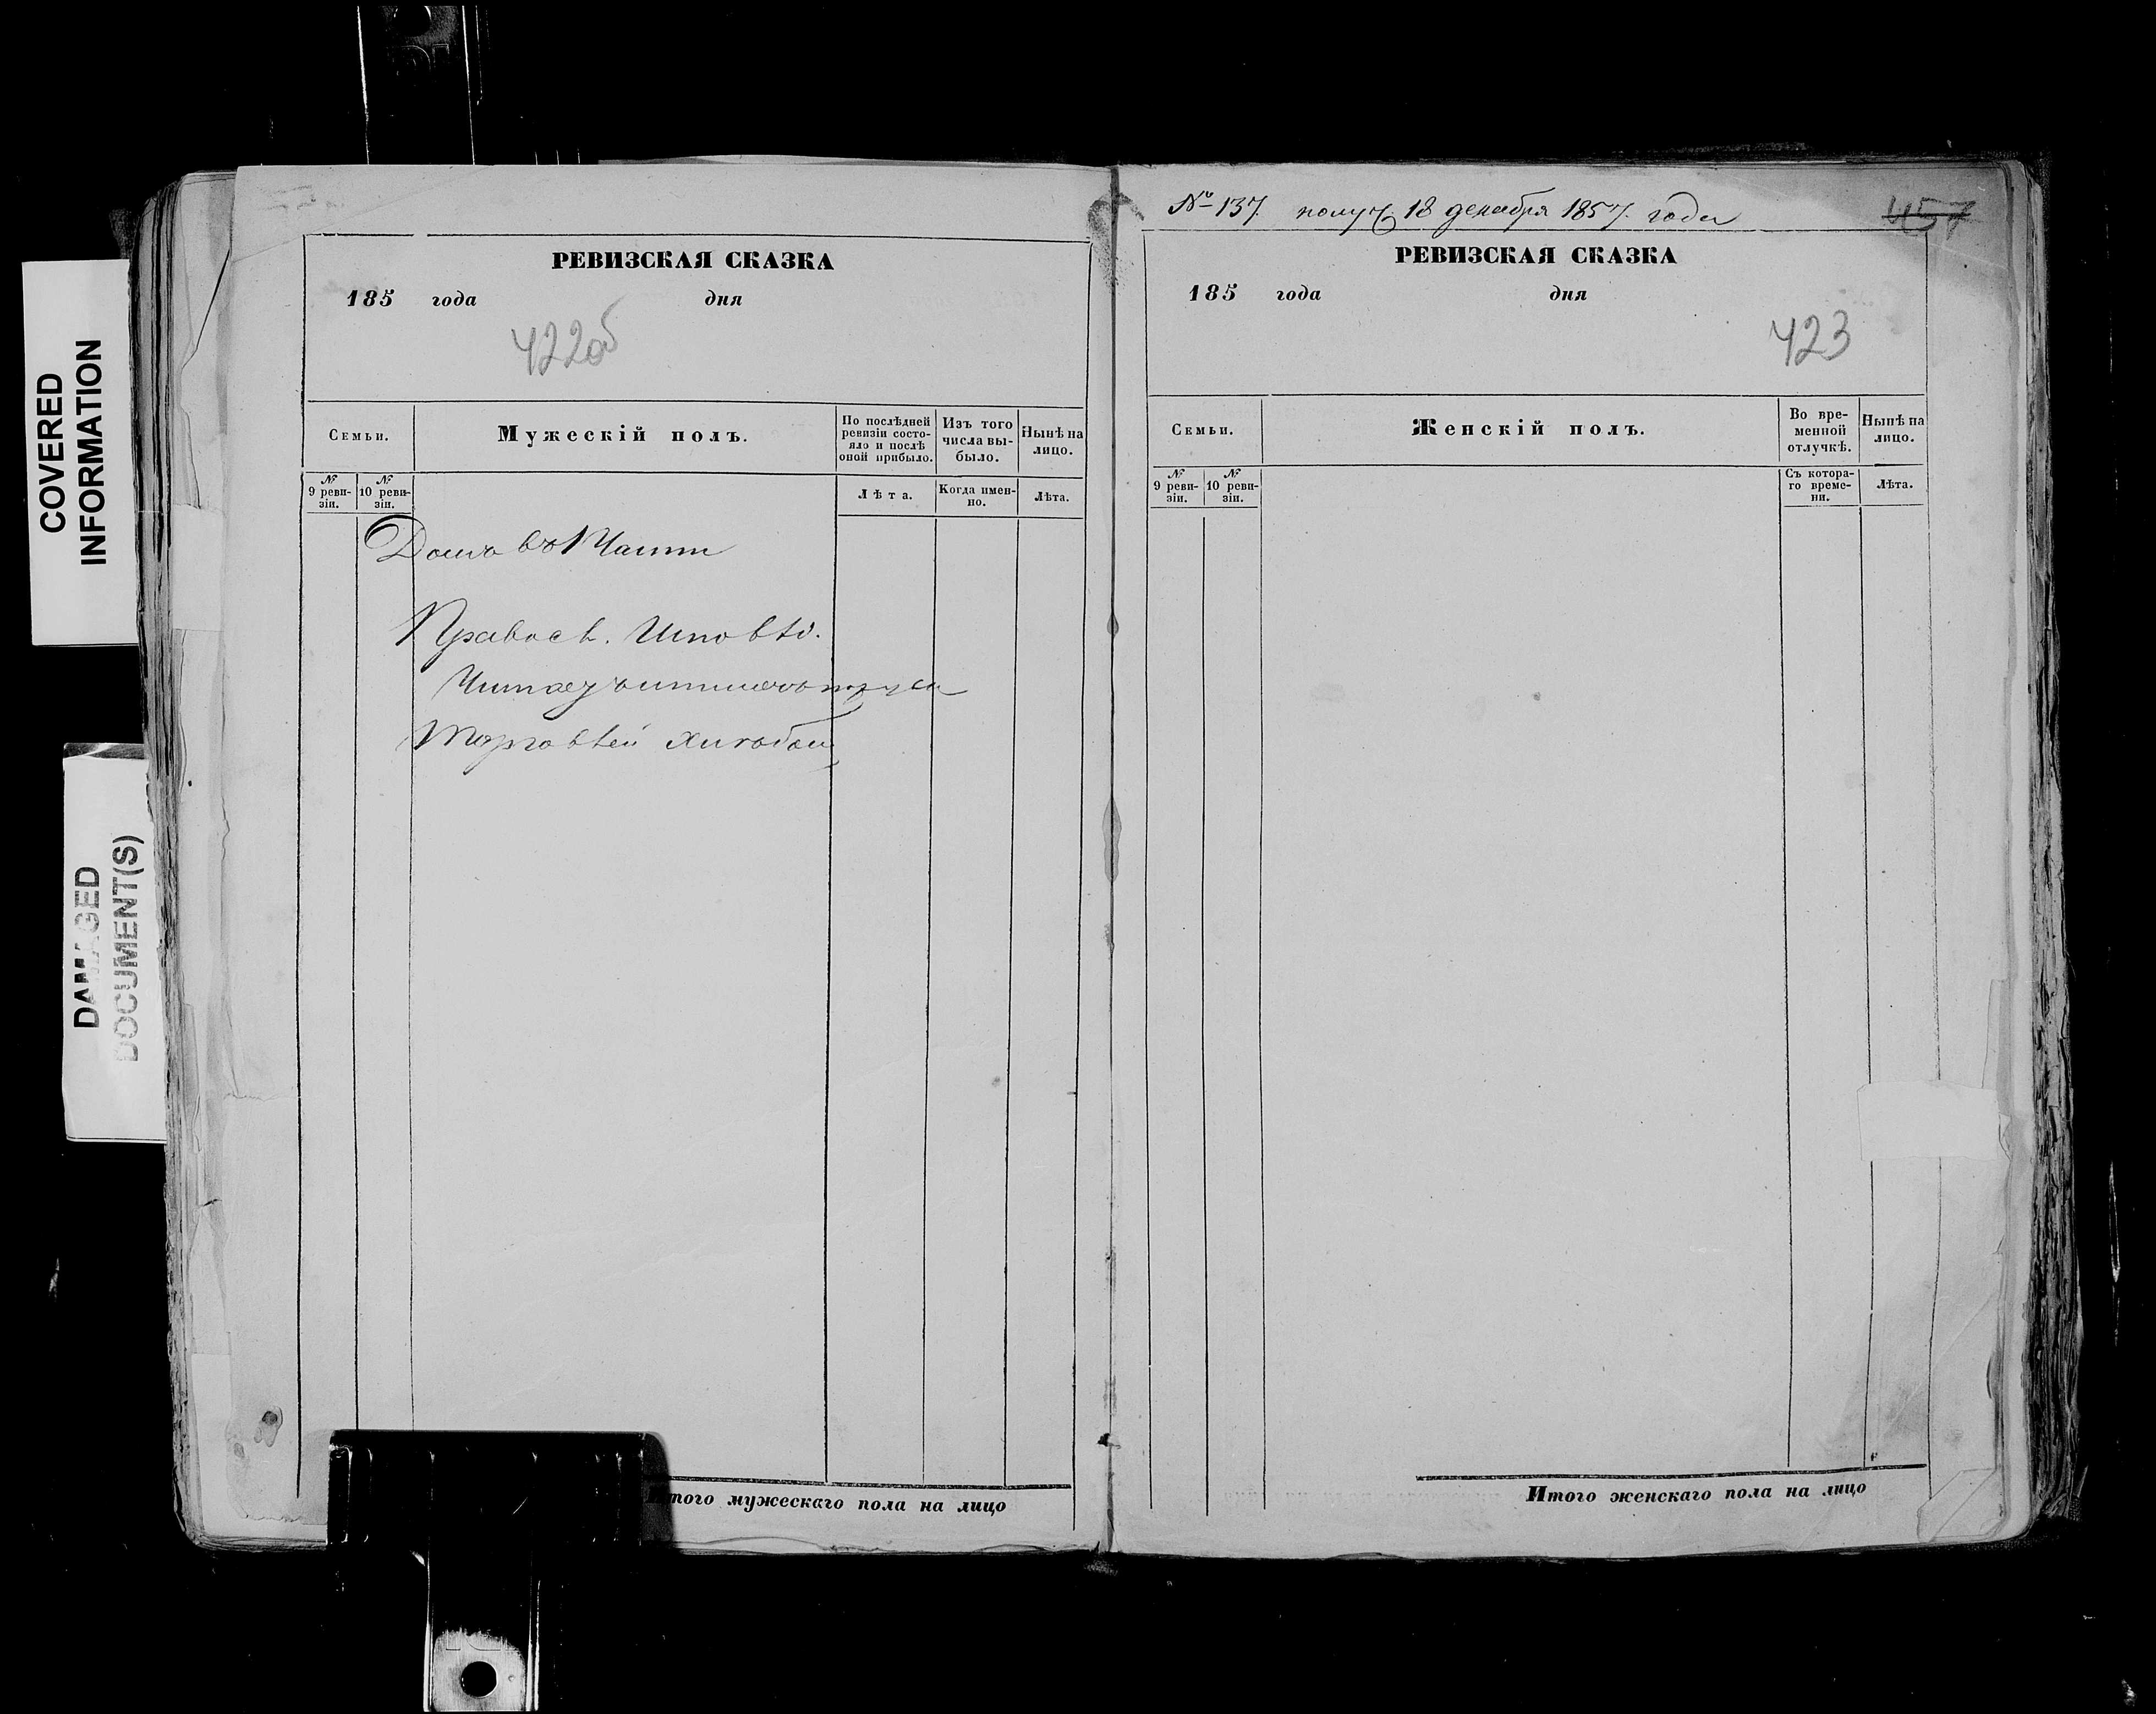 COVERED
INFORMATION
DAMAGED
DOCUMENT(S)
РЕВИЗСКАЯ СКАЗКА
185 года дня
422об
Семьи.
Мужескій полъ.
По послѣдней
ревизіи состо-
яло и послѣ
оной прибыло.
Изъ того
числа вы-
было.
Нынѣ на
лицо.
№
9 реви-
зіи.
№
10 реви-
зіи.
Лѣта.
Когда имен-
но.
Лѣта.
Домъ въ 1 Части
Правосл. Исповѣ.
Торговлей хлѣбом
того мужескаго пола на лицо
№ 137. получ. 18 декабря 1857. года
457
РЕВИЗСКАЯ СКАЗКА
185 года дня
423
Семьи.
Женскій полъ.
Во вре-
менной
отлучкѣ.
Нынѣ на
лицо.
№
9 реви-
зіи.
№
10 реви-
зіи.
Съ котора-
го време-
ни.
Лѣта.
Итого женскаго пола на лицо